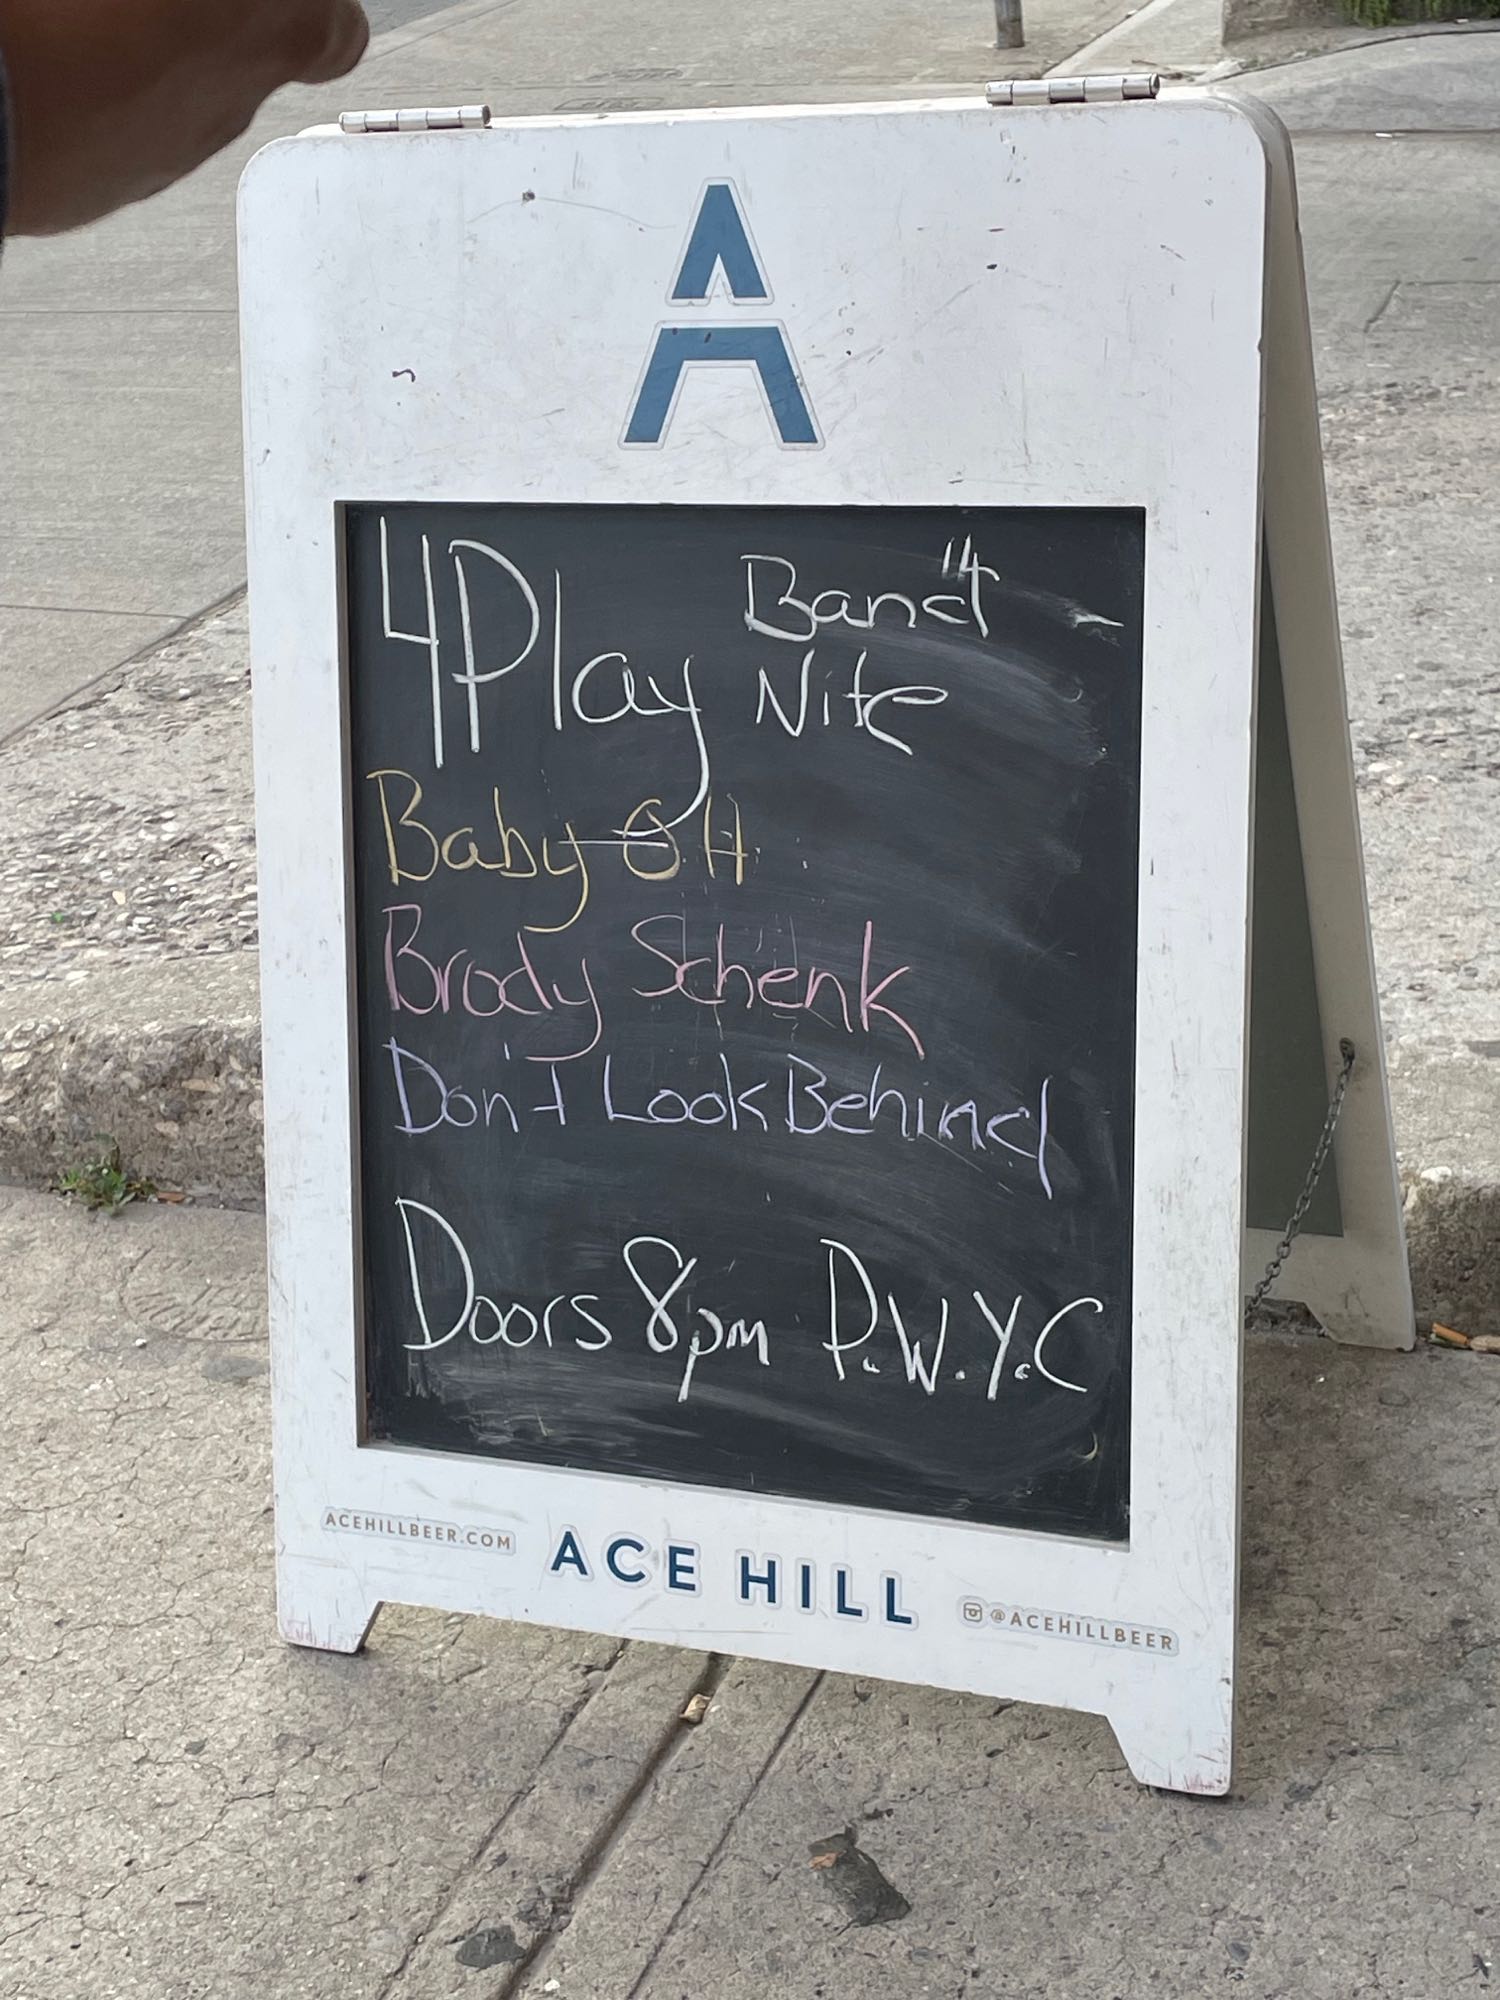 4Play Band
Nite
Baby O.H.
Brody Schenk
Don't Look Behind
Doors 8pm P.W.Y.C
ACEHILLBEER.COM
ACE HILL
@ACEHILLBEER